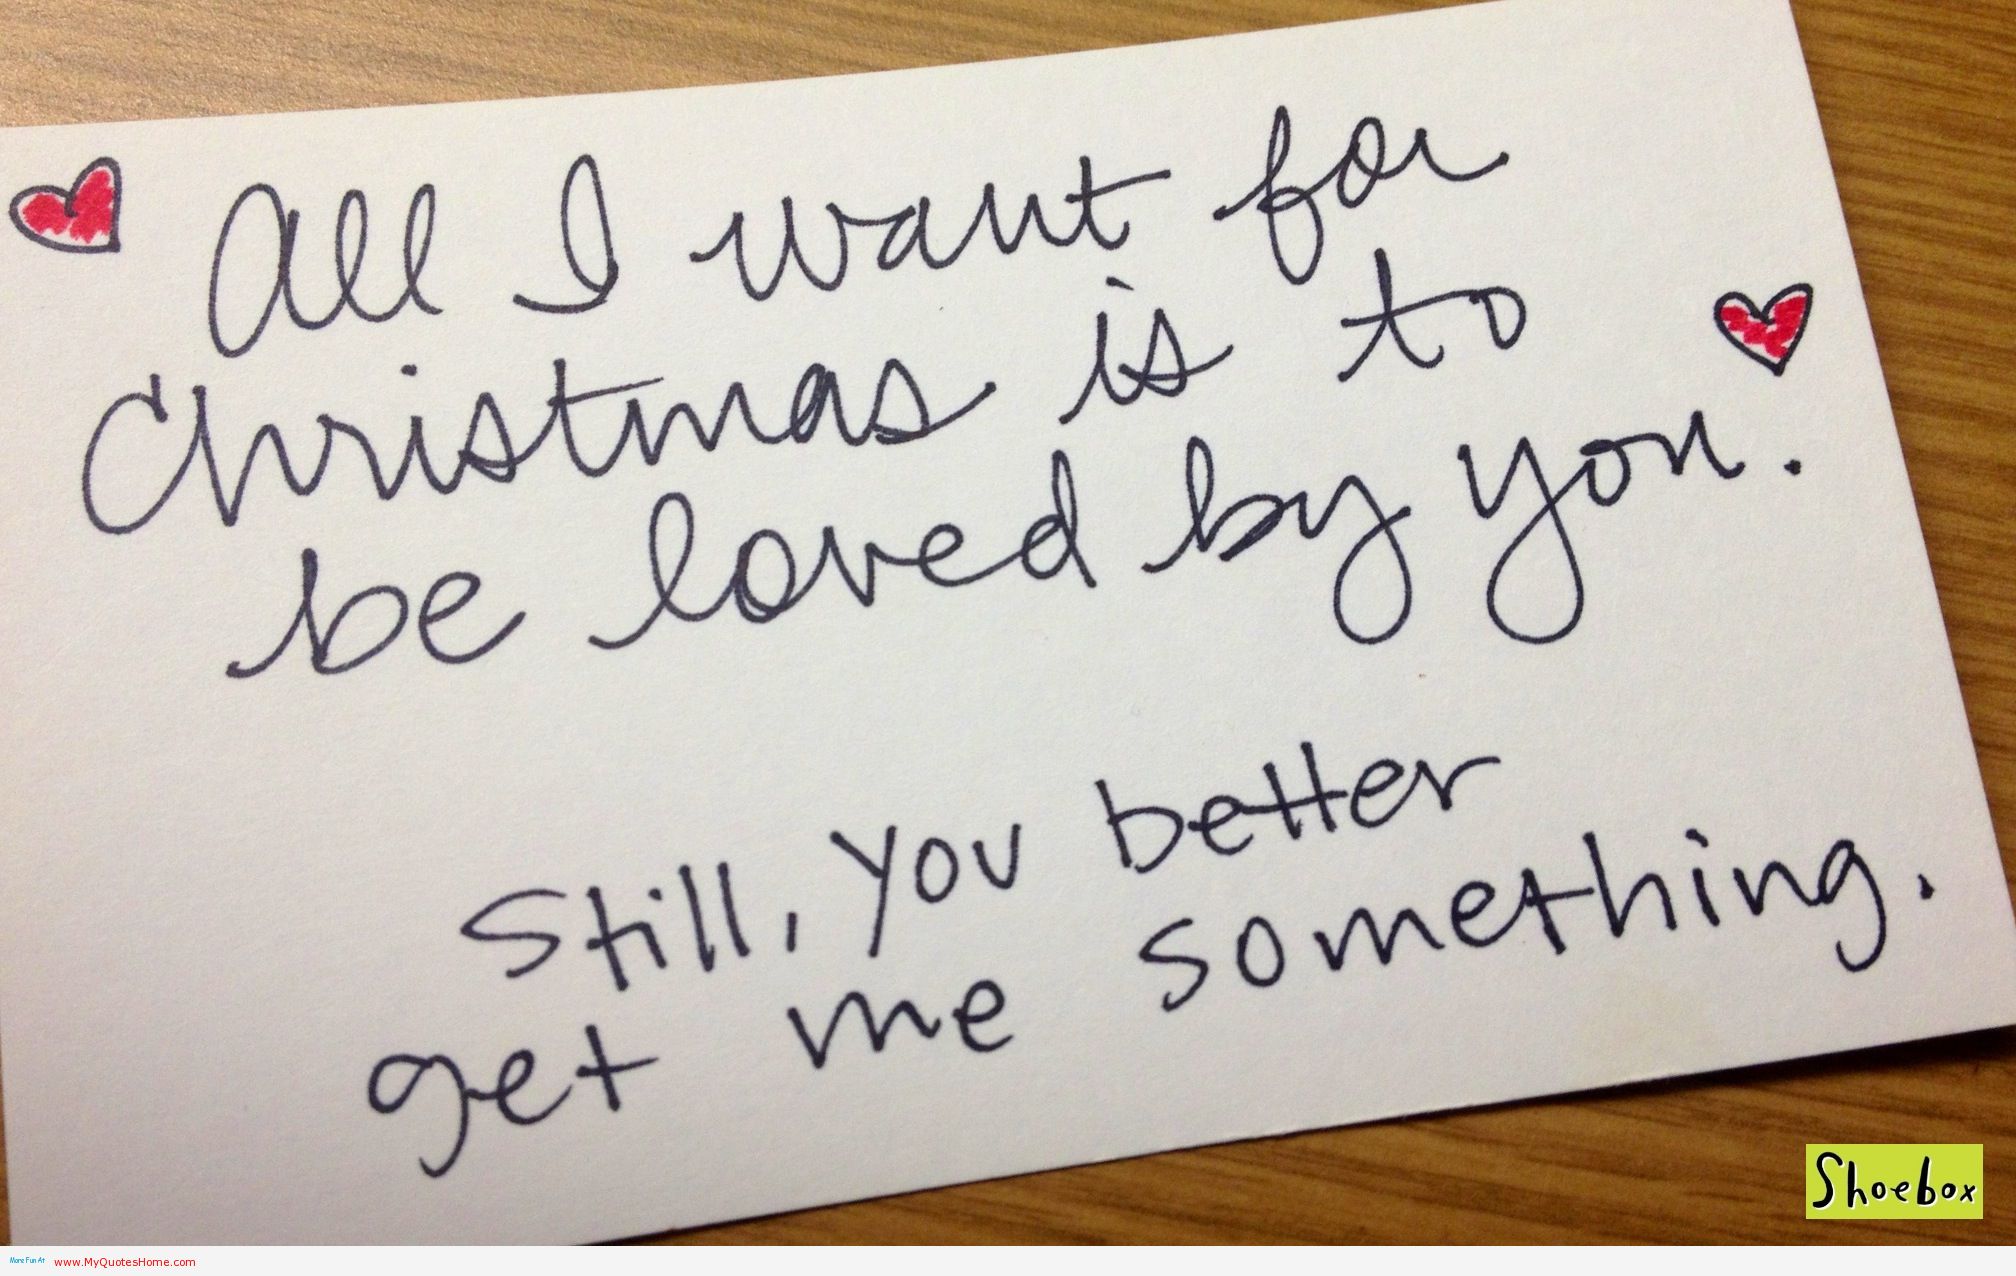 All I want for
Christmas is to
be loved by you.
Still, you better
get me something.
Shoebox
More Fun At www.MyQuotesHome.com